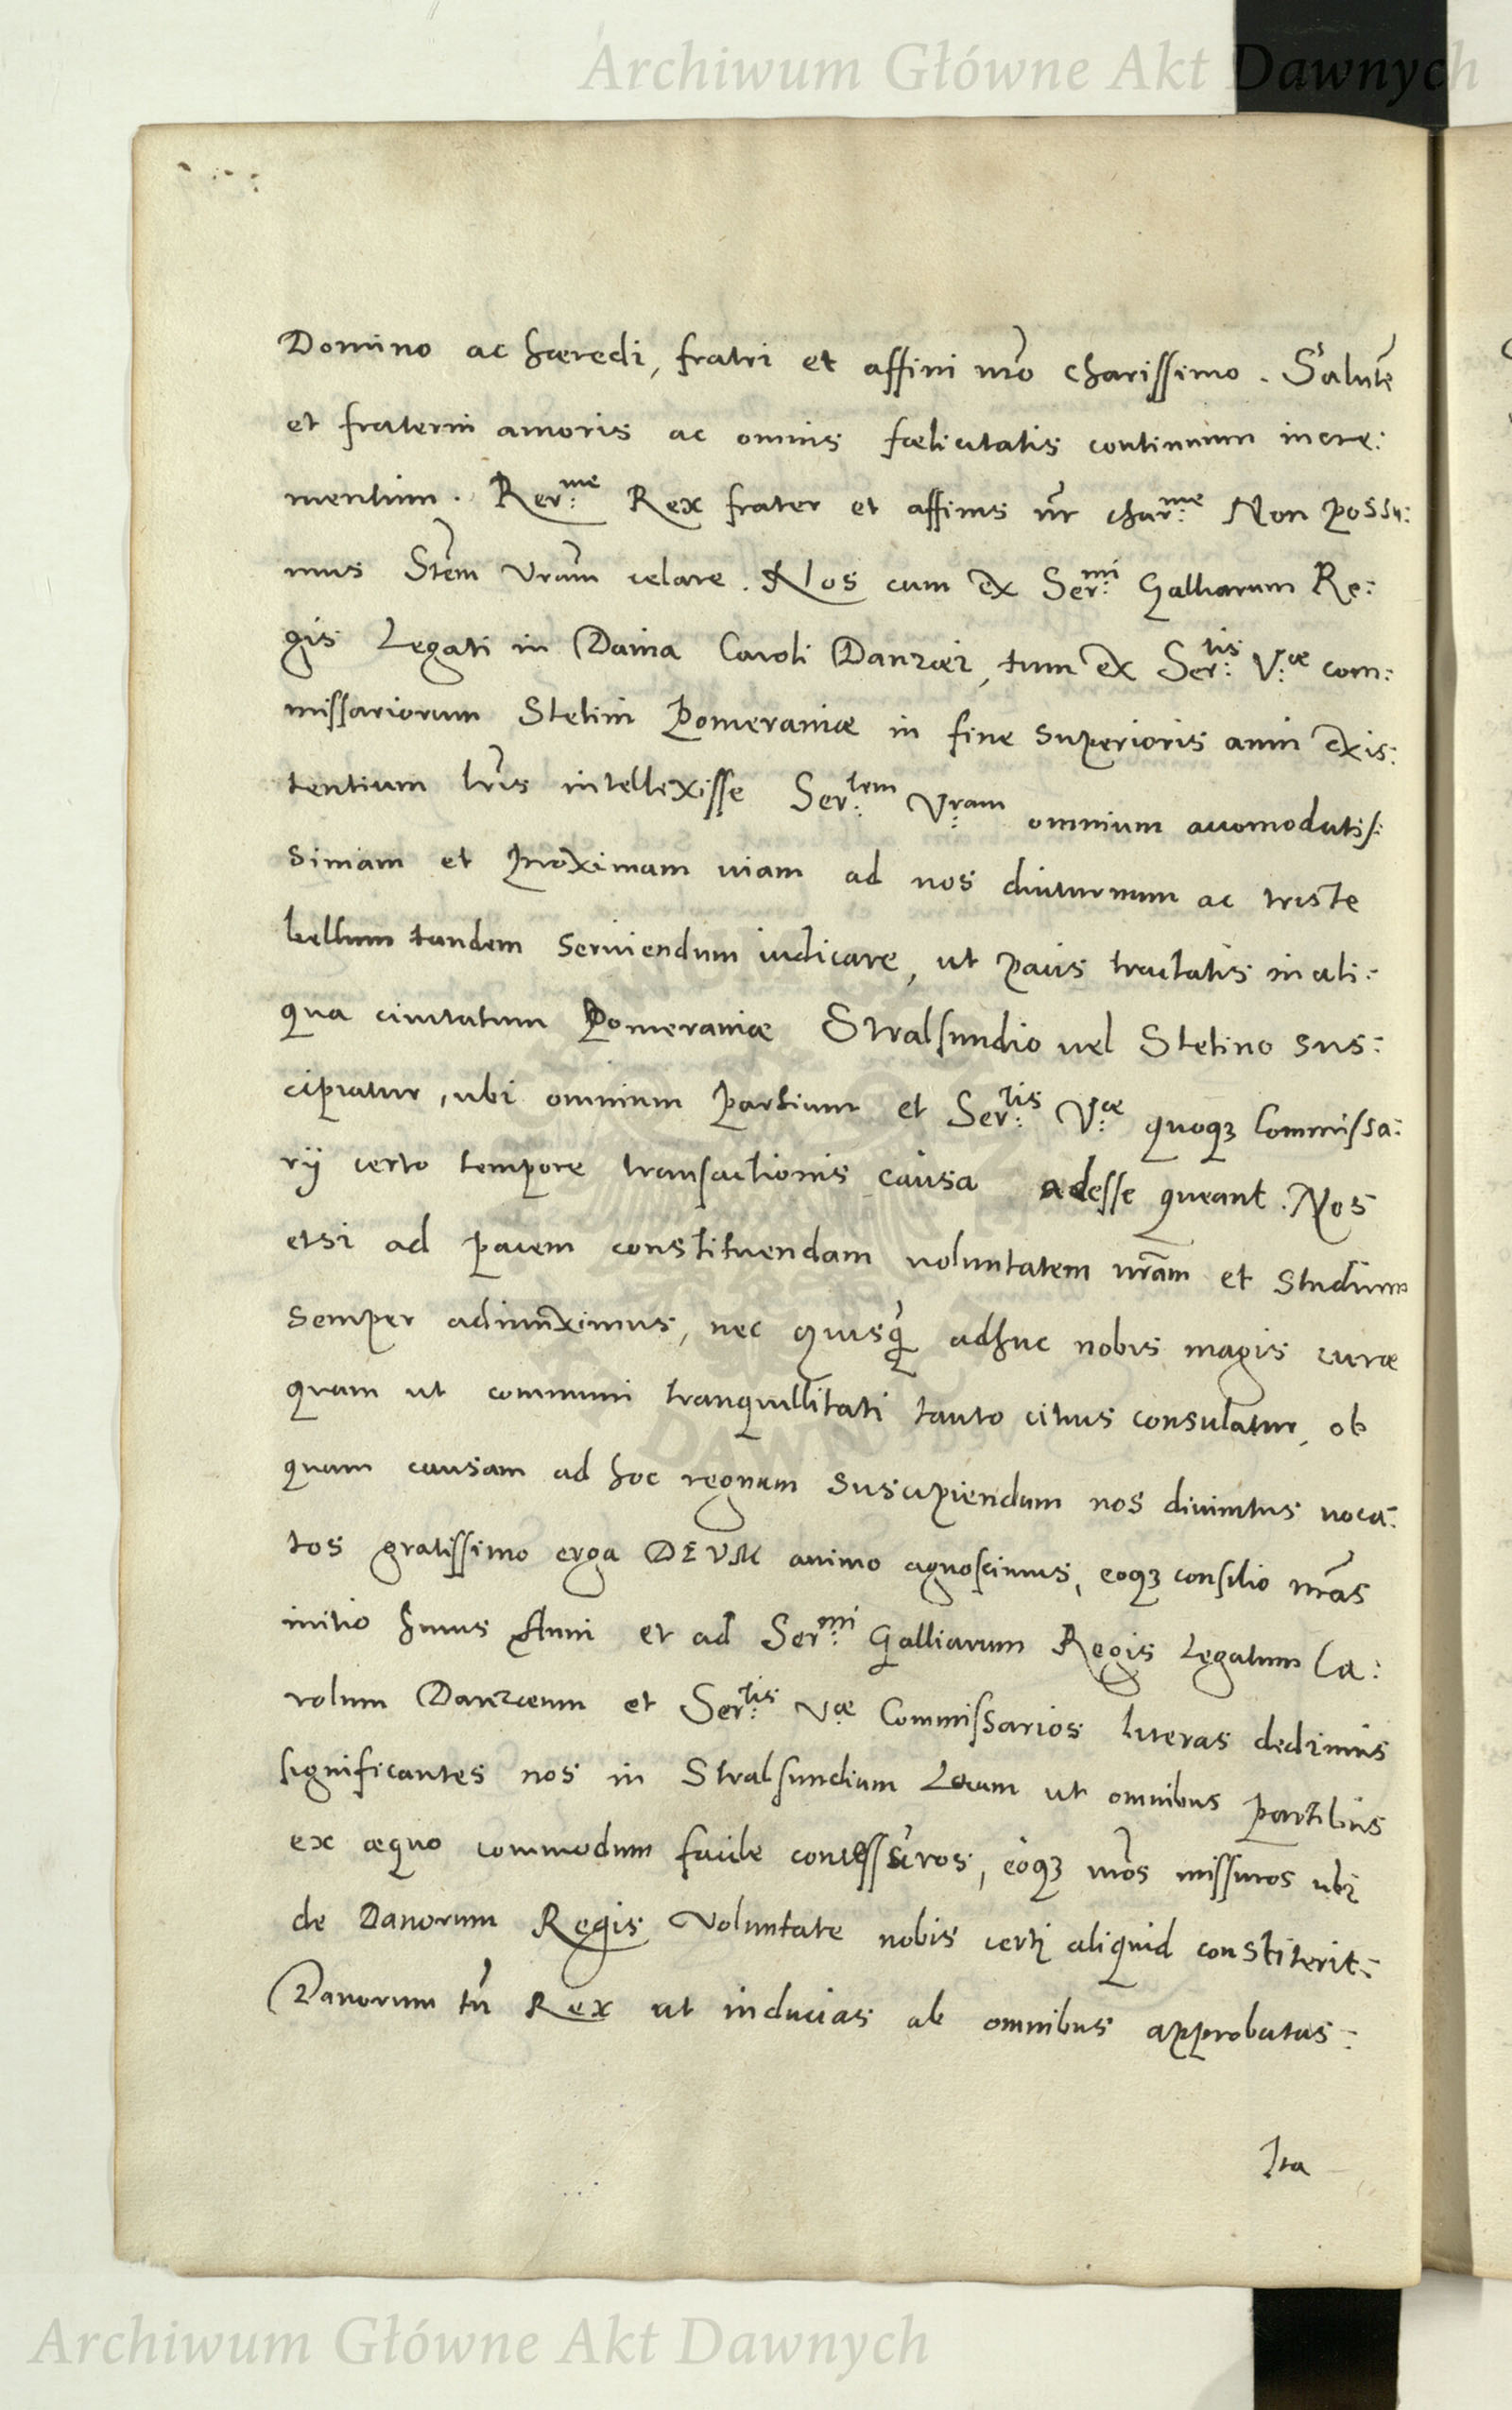 Archiwum Główne Akt Dawnych
Domino ac hæredi, fratri et affini nr̃o charissimo. Salutẽ
et fraterni amoris ac omnis fœlicitatis continuum incre:
mentum. Ser:me Rex frater et affinis nr̃ char:me Non possu:
mus S̃tem Vr̃am celare. Nos cum ex Ser:mi Galliarum Re:
gis Legati in Dania Caroli Danzæi, tum ex Ser:tis V:æ com:
missariorum Stetini Pomeraniæ in fine superioris anni exis:
tentium lr̃is intellexisse Ser:tem V:ram omnium accomodatis:
simam et proximam uiam ad nos diuturnum ac triste
bellum tandem seruiendum iudicare, ut pacis tractatis in ali:
qua ciuitatum Pomeraniæ Stralsundio uel Stetino sus:
cipiatur, ubi omnium partium et Ser:tis V:æ quoqꝫ Commissa:
rij certo tempore transactionis causa adesse queant. Nos
etsi ad pacem constituendam uoluntatem nr̃am et studium
semper adiunximus, nec quisq̃ adhuc nobis magis curæ
quam ut communi tranquillitati tanto citius consulatur, ob
quam causam ad hoc regnum suscipiendum nos diuinitus uoca:
tos gratissimo erga DEUM animo agnoscimus, eoqꝫ consilio nr̃as
initio huius Anni et ad Ser:mi Galliarum Regis Legatum Ca:
rolum Danzæum et Ser:tis V:æ Commissarios literas dedimus
significantes nos in Stralsundium Locum ut omnibus partibus
ex æquo commodum facile concessuros, eoqꝫ nr̃os missuros ubi
de Danorum Regis Voluntate nobis certi aliquid constiterit:
Danorum tñ Rex ut inducias ab omnibus approbatas:
Ita
Archiwum Główne Akt Dawnych